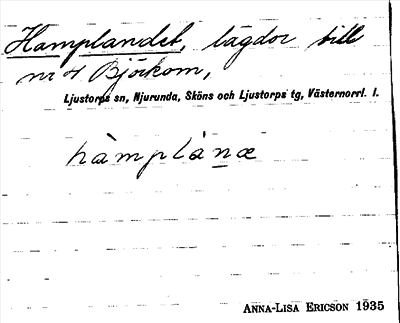 Hamplandet, lägdor till
nr 4 Björkom,
Ljustorps sn, Njurunda, Sköns och Ljustorps tg, Västernorrl. l.
hàmplánæ
ANNA-LISA ERICSON 1935